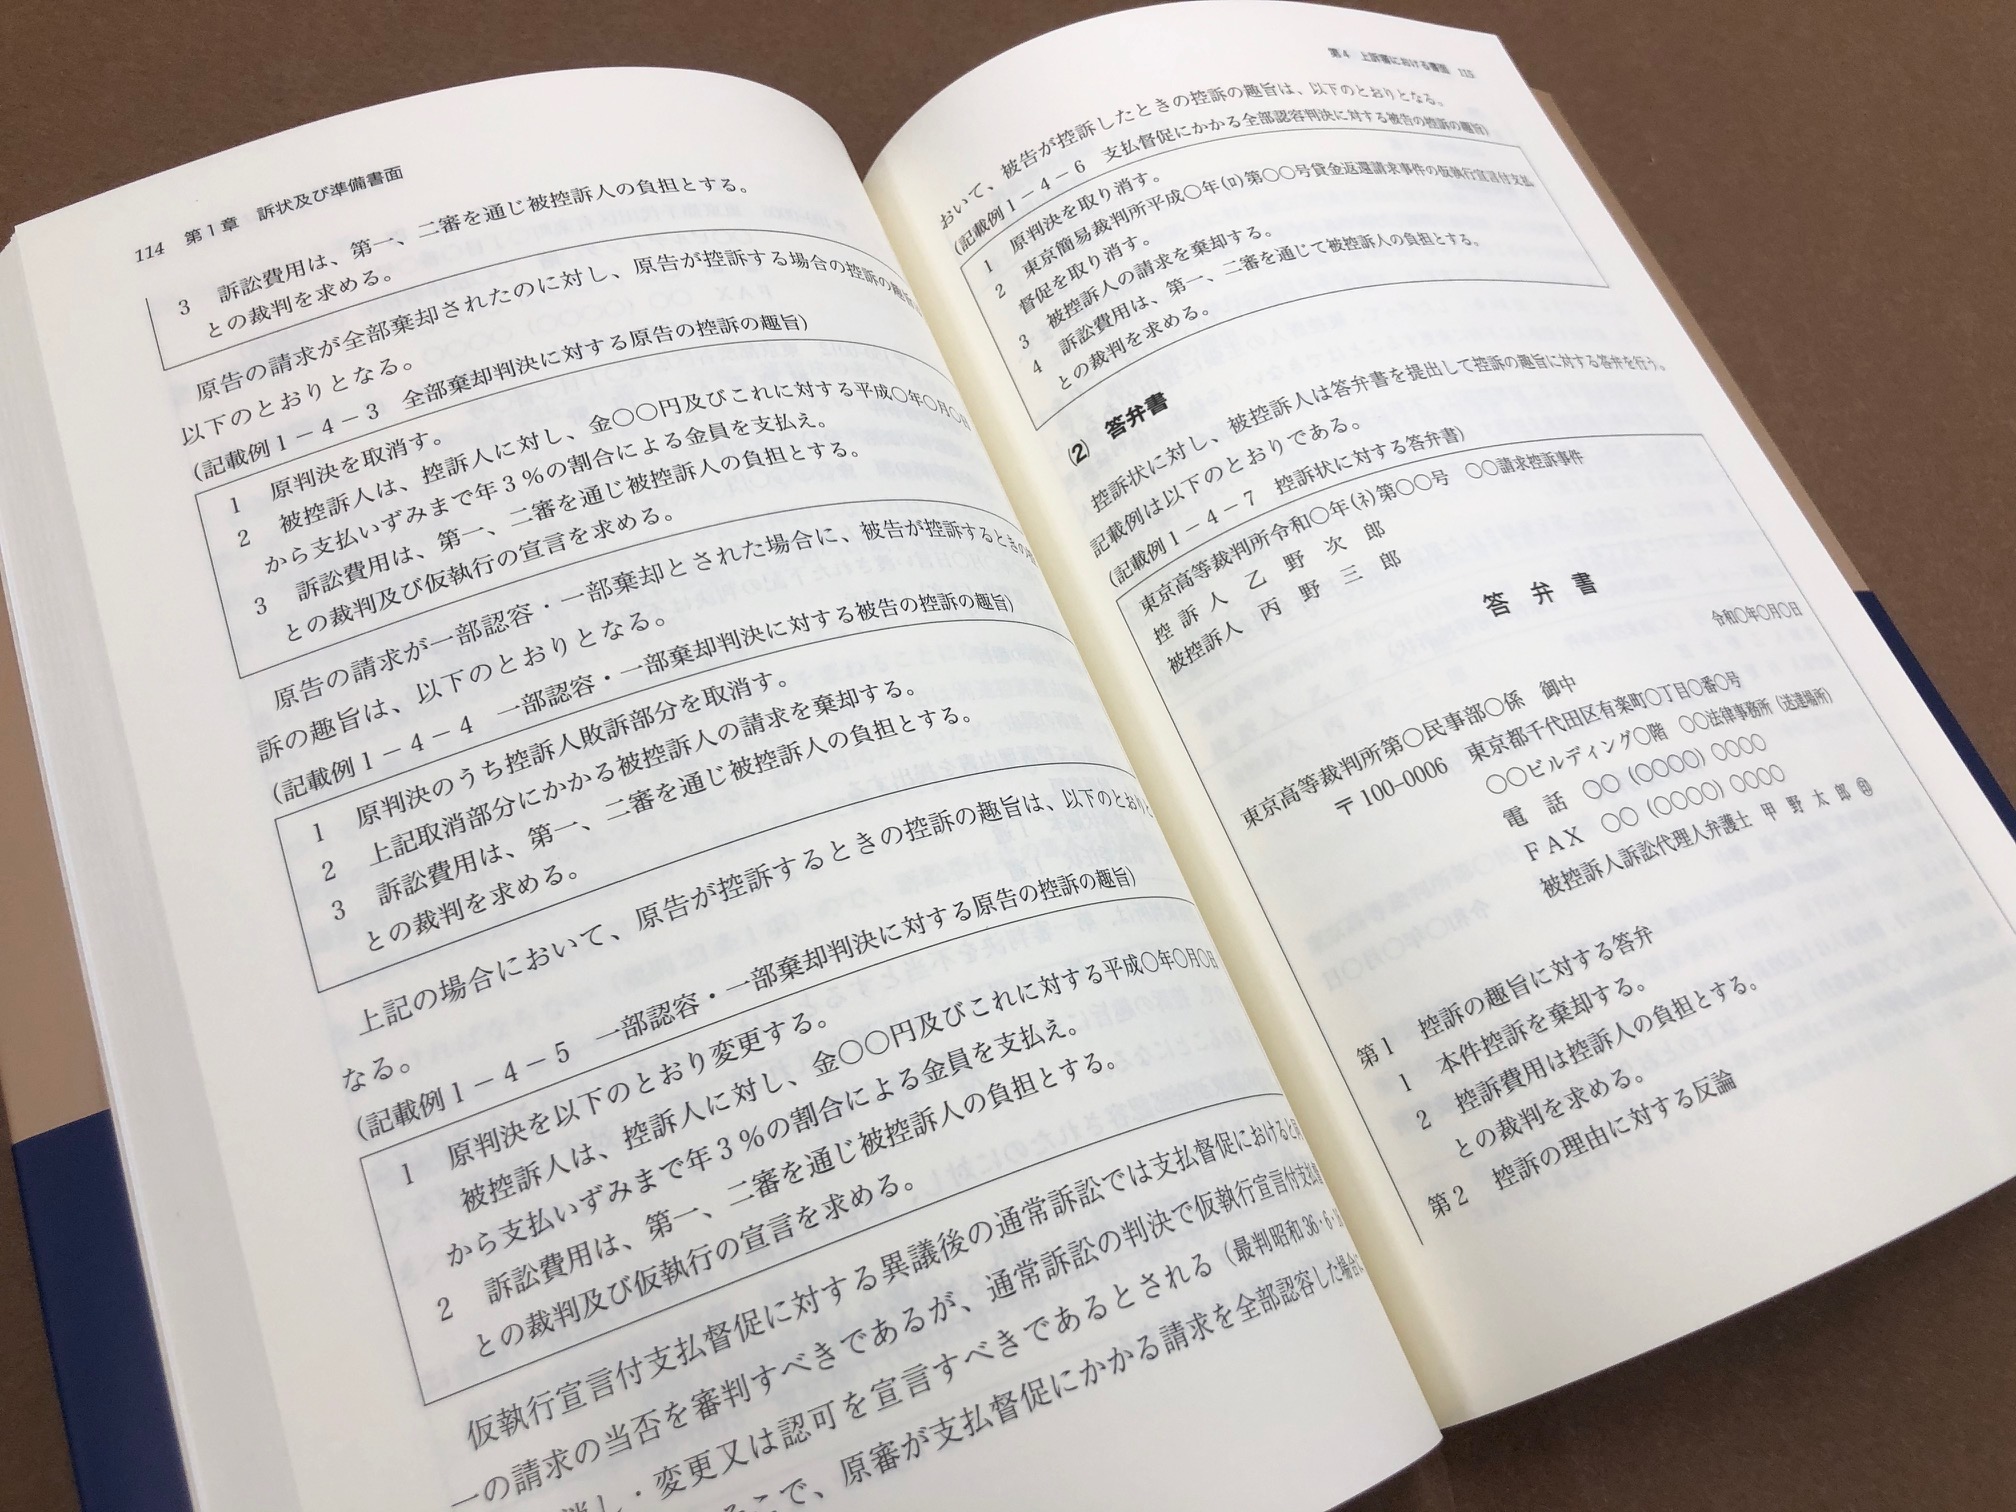 114 第1章 訴状及び準備書面
3 訴訟費用は、第一、二審を通じ被控訴人の負担とする。
との裁判を求める。
原告の請求が全部棄却されたのに対し、原告が控訴する場合の控訴の趣旨
以下のとおりとなる。
(記載例1−4−3 全部棄却判決に対する原告の控訴の趣旨)
1 原判決を取消す。
2 被控訴人は、控訴人に対し、金〇〇円及びこれに対する平成〇年〇月〇日
から支払いずみまで年3%の割合による金員を支払え。
3 訴訟費用は、第一、二審を通じ被控訴人の負担とする。
との裁判及び仮執行の宣言を求める。
原告の請求が一部認容・一部棄却とされた場合に、被告が控訴するときの
訴の趣旨は、以下のとおりとなる。
(記載例1−4−4 一部認容・一部棄却判決に対する被告の控訴の趣旨)
1 原判決のうち控訴人敗訴部分を取消す。
2 上記取消部分にかかる被控訴人の請求を棄却する。
3 訴訟費用は、第一、二審を通じ被控訴人の負担とする。
との裁判を求める。
上記の場合において、原告が控訴するときの控訴の趣旨は、以下のとおりと
なる。
(記載例1−4−5 一部認容・一部棄却判決に対する原告の控訴の趣旨)
1 原判決を以下のとおり変更する。
被控訴人は、控訴人に対し、金〇〇円及びこれに対する平成〇年〇月〇日
から支払いずみまで年3%の割合による金員を支払え。
2 訴訟費用は、第一、二審を通じ被控訴人の負担とする。
との裁判及び仮執行の宣言を求める。
仮執行宣言付支払督促に対する異議後の通常訴訟では支払督促におけると
一の請求の当否を審判すべきであるが、通常訴訟の判決で仮執行宣言付支払
消し・変更又は認可を宣言すべきであるとされる(最判昭和36・6・
こで、原審が支払督促にかかる請求を全部認容した場合に
第4 上訴審における書面 115
おいて、被告が控訴したときの控訴の趣旨は、以下のとおりとなる。
(記載例1−4−6 支払督促にかかる全部認容判決に対する被告の控訴の趣旨)
1 原判決を取り消す。
2 東京簡易裁判所平成〇年(ロ)第〇〇号貸金返還請求事件の仮執行宣言付支払
督促を取り消す。
3 被控訴人の請求を棄却する。
4 訴訟費用は、第一、二審を通じて被控訴人の負担とする。
との裁判を求める。
(2) 答弁書
控訴状に対し、被控訴人は答弁書を提出して控訴の趣旨に対する答弁を行う。
記載例は以下のとおりである。
(記載例1−4−7 控訴状に対する答弁書)
東京高等裁判所令和〇年(ネ)第〇〇号 〇〇請求控訴事件
控訴人 乙野次郎
被控訴人 丙野三郎
答弁書
令和〇年〇月〇日
東京高等裁判所第〇民事部〇係 御中
〒100−0006 東京都千代田区有楽町〇丁目〇番〇号
〇〇ビルディング〇階 〇〇法律事務所(送達場所)
電話 〇〇(〇〇〇〇)〇〇〇〇
FAX 〇〇(〇〇〇〇)〇〇〇〇
被控訴人訴訟代理人弁護士 甲野太郎 ㊞
第1 控訴の趣旨に対する答弁
1 本件控訴を棄却する。
2 控訴費用は控訴人の負担とする。
との裁判を求める。
第2 控訴の理由に対する反論